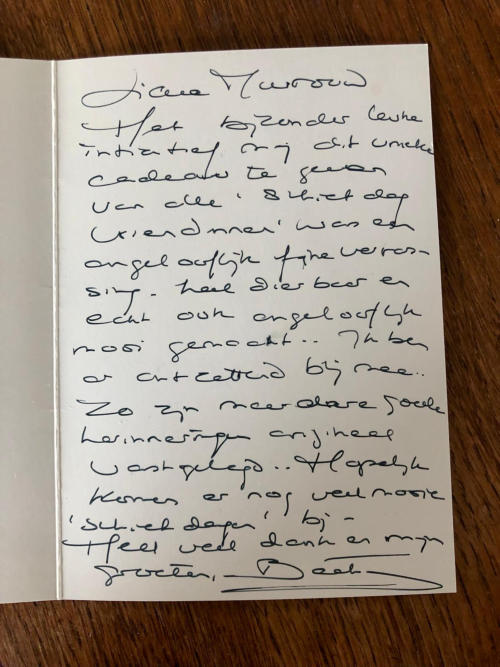 Het bijzonder leuke
initiatief mij dit unieke
cadeau te geven
van alle 'Schietdag
vriendinnen' was een
ongelooflijk fijne verras-
sing. Heel dierbaar en
echt ook ongelooflijk
mooi gemaakt.. Ik ben
er ontzettend blij mee..
Zo zijn meerdere goede
herinneringen origineel
vastgelegd.. Hopelijk
komen er nog veel mooie
'schietdagen' bij -
Heel veel dank en mijn
groeten,